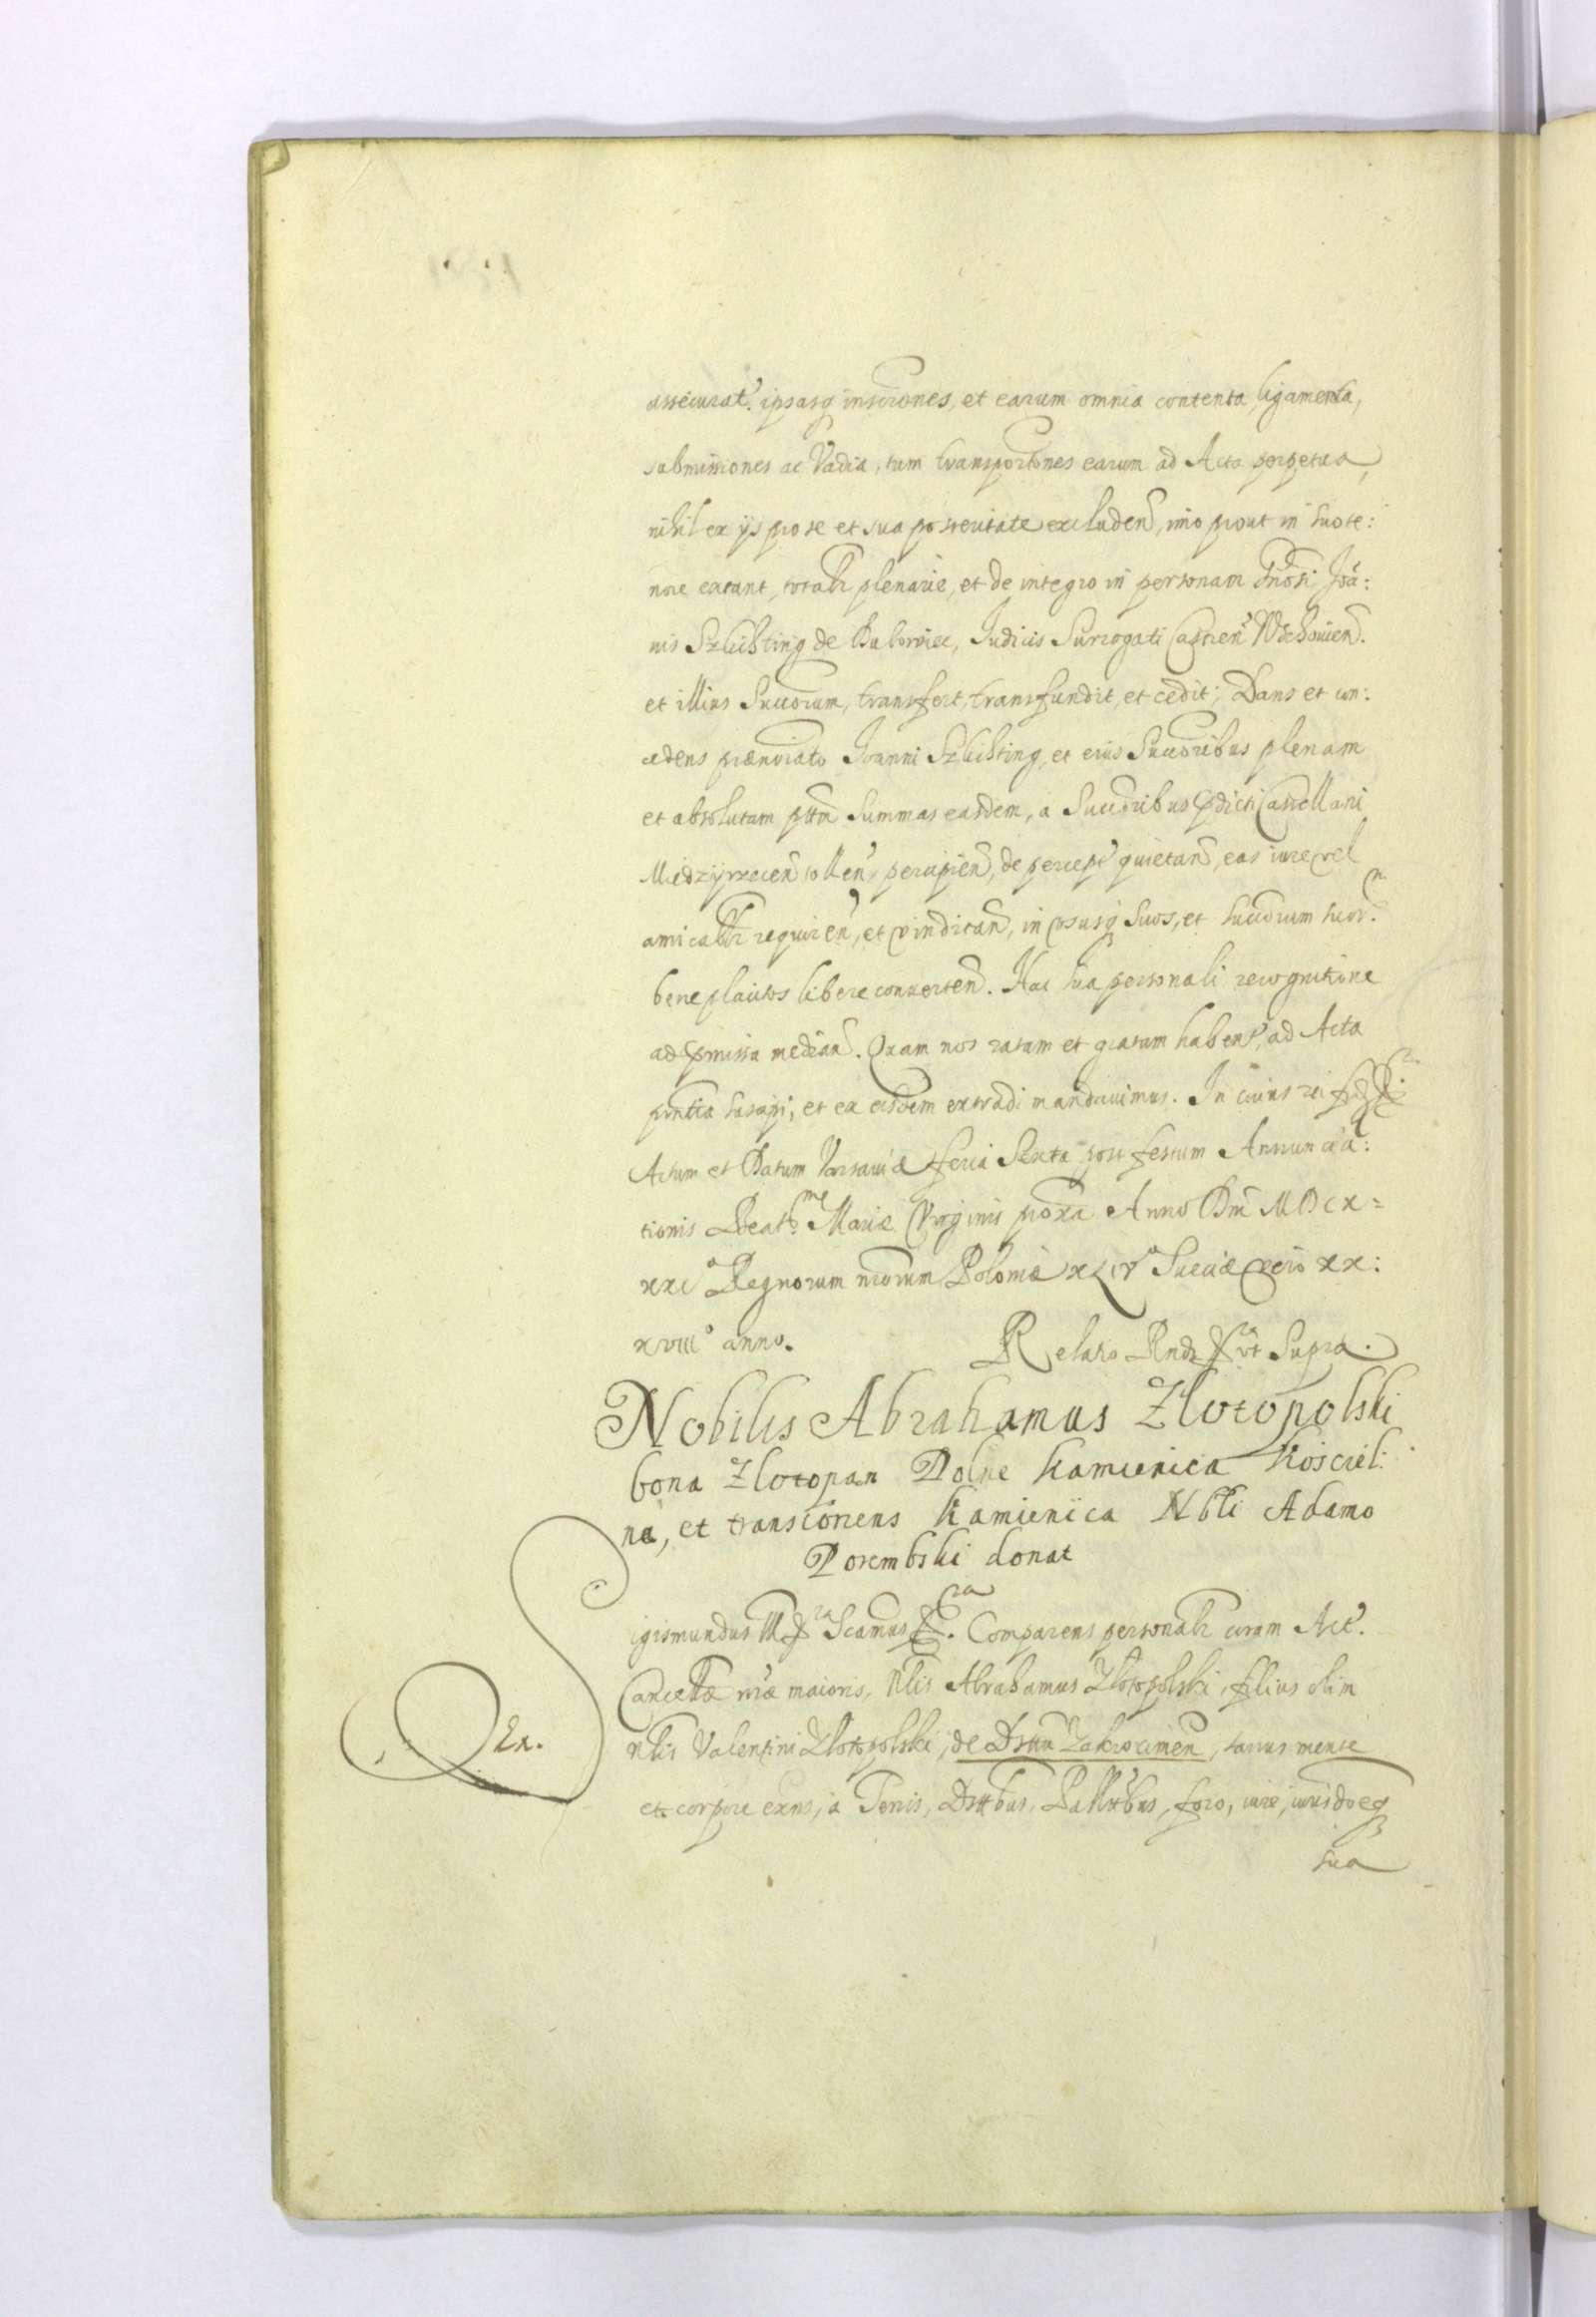 assecurat. ipsasq inscriones, et earum omnia contenta, ligamenta,
submissiones ac Vadia, tum transportiones earum ad Acta perpetua,
nihil ex ijs pro se et sua posteritate excluden, imo prout in suo te:
nore extant, totalr plenarie, et de integro in personam Gnosi Joã:
nis Szlichting de Bukowiec, Judicis Surrogati Castren Wschouien.
et illius Succorum, transfert, transfundit, et cedit; Dans et con:
cedens prænoiato Joanni Szlichting, et eius Succoribus plenam
et absolutam pttm Summas easdem, a Succoribus pdicti Castellani
Miedzyrzecen tollen, percipien, de percept quietan, eas iure vel
amicabtr requiren, et vindican, in vsusq suos, et succorum suor.
beneplacitos libere conuerten. Hac sua personali recognitione
ad pmissa median. Quam nos ratam et gratam habent, ad Acta
pntia suscipi, et ex eisdem extradi mandauimus. In cuius rei fid
Actum et Datum Varsauiæ feria Sexta post festum Annuncia:
tionis Beatme Mariæ Virginis proxa Anno Dni MDCX=
XXIo Regnorum nrorum Poloniæ XLIVo Sueciæ vero XX:
XVIIIo anno. Relatio Rndi ut Supra.
Nobilis Abrahamus Zlotopolski
bona Zlotopan Dolne Kamienica Kosciel:
na, et transiciens Kamienica Nbli Adamo
Porembski donat
Sigismundus III Dei gra Scamus. Comparens personalr coram Act.
Cancellæ nræ maioris, Nblis Abrahamus Zlotopolski, filius olim
Nblis Valentini Zlotopolski, de Dsttu Zakrocimen, sanus mente
et corpore exns, a Terris, Dsttbus, Pallttbus, foro, iure, iurisdoeq
sua
Ex.